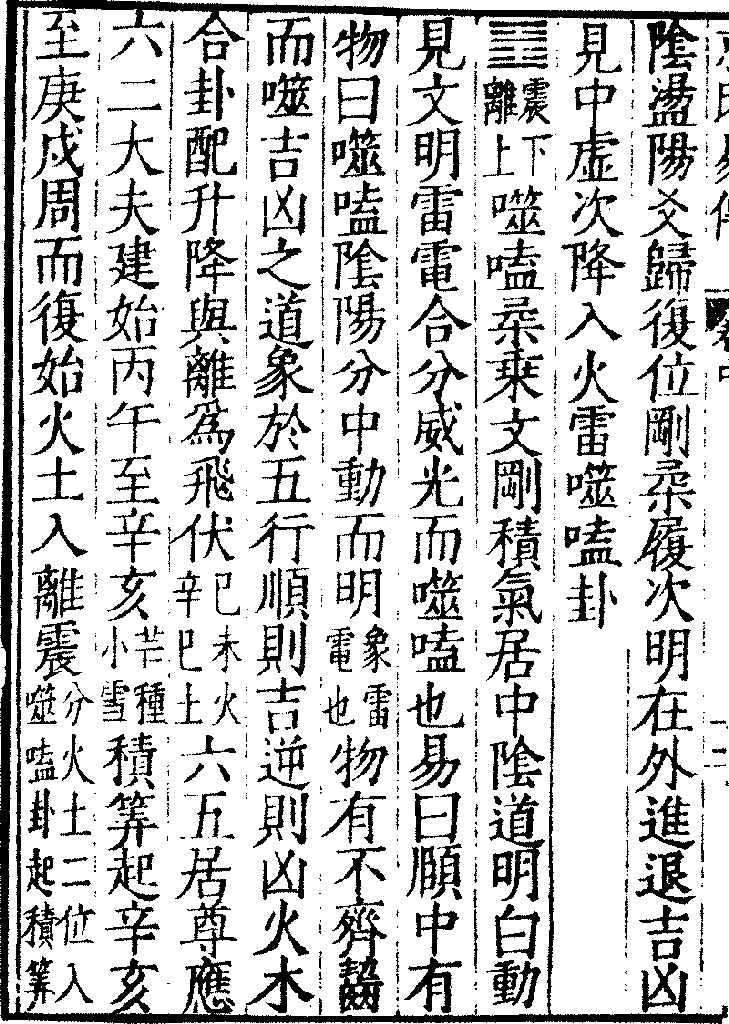 陰盪陽爻歸復位剛柔履次明在外進退吉凶
見中虛次降入火雷噬嗑卦
震下離上噬嗑柔乗文剛積氣居中陰道明白動
見文明雷電合分威光而噬嗑也易曰頤中有
物曰噬嗑陰陽分中動而明象雷電也物有不齊齧
而噬吉凶之道象於五行順則吉逆則凶火木
合卦配升降與離爲飛伏己未火辛巳土六五居尊應
六二大夫建始丙午至辛亥芒種小雪積筭起辛亥
至庚戍周而復始火土入離震分火土二位入噬嗑卦起積筭